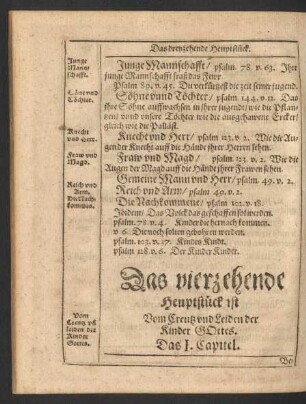 Das dreyzehende Heuptstück.
Junge Mannschafft.
Junge Mannschafft / psalm. 78. v. 63. Ihre
junge Mannschafft fraß das Fewr.
Psalm 89. v. 45. Du verkürtzest die zeit seiner jugend.
Söhne vnd Töchter.
Söhne vnd Töchter / psalm 144. v. 12. Das
ihre Söhne auffwachsen in ihrer jugend / wie die Pflan-
tzen / vnd vnsere Töchter wie die ausgehawene Ercker /
gleich wie die Palläst.
Knecht vnd Herr.
Knecht vnd Herr / psalm 123. v. 2. Wie die Au-
gen der Knecht auff die Hände ihrer Herren sehen.
Fraw vnd Magd.
Fraw vnd Magd / psalm. 123. v. 2. Wie die
Augen der Magd auff die Hände ihrer Frawen sehen.
Gemeine Mann vnd Herr / psalm. 49. v. 2.
Reich vnd Arm.
Reich vnd Arm / psalm. 49. v. 2.
Die Nachkommen.
Die Nachkommene / psalm 102. v. 18.
Ibidem: Das Volck das geschaffen sol werden.
psalm. 78. v. 4. Kinder die hernach kommen.
v. 6. Die noch solten gebohren werden.
psalm. 103. v. 17. Kindes Kindt.
psalm 128. v. 6. Der Kinder Kinder.
Das vierzehende
Heuptstück ist
Vom Creutz vnd leiden der Kinder Gottes.
Vom Creutz vnd Leiden der
Kinder GOttes.
Das I. Capitel.